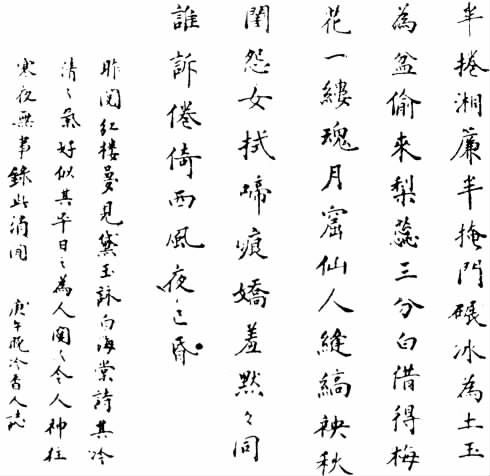 半捲湘簾半掩門碾冰為土玉
為盆偷來梨蕊三分白借得梅
花一縷魂月窟仙人縫縞袂秋
閨怨女拭啼痕嬌羞默々同
誰訴倦倚西風夜已昏
昨閱紅樓夢見黛玉詠白海棠詩其冷
清之氣好似其平日之為人閱之令人神往
寒夜無事錄此消閒 庚午晚冷香人誌